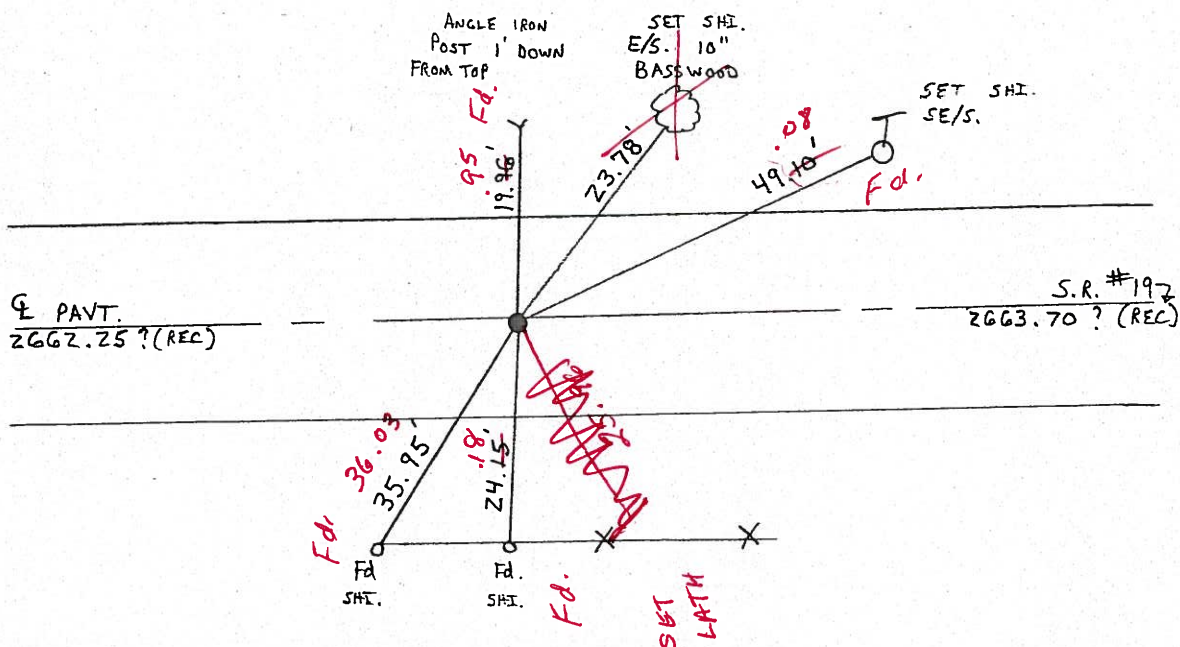 ANGLE IRON
POST 1' DOWN
FROM TOP
SET SHI.
E/S. 10"
BASSWOOD
SET SHI.
SE/S.
Fd.
.95
19.96'
23.78'
.08
49.10'
Fd.
℄ PAVT.
2662.25 ? (REC)
S.R. #192
2663.70 ? (REC)
36.03
35.95'
.18
24.15'
Fd.
Fd
SHI.
Fd.
SHI.
Fd.
SET
LATH